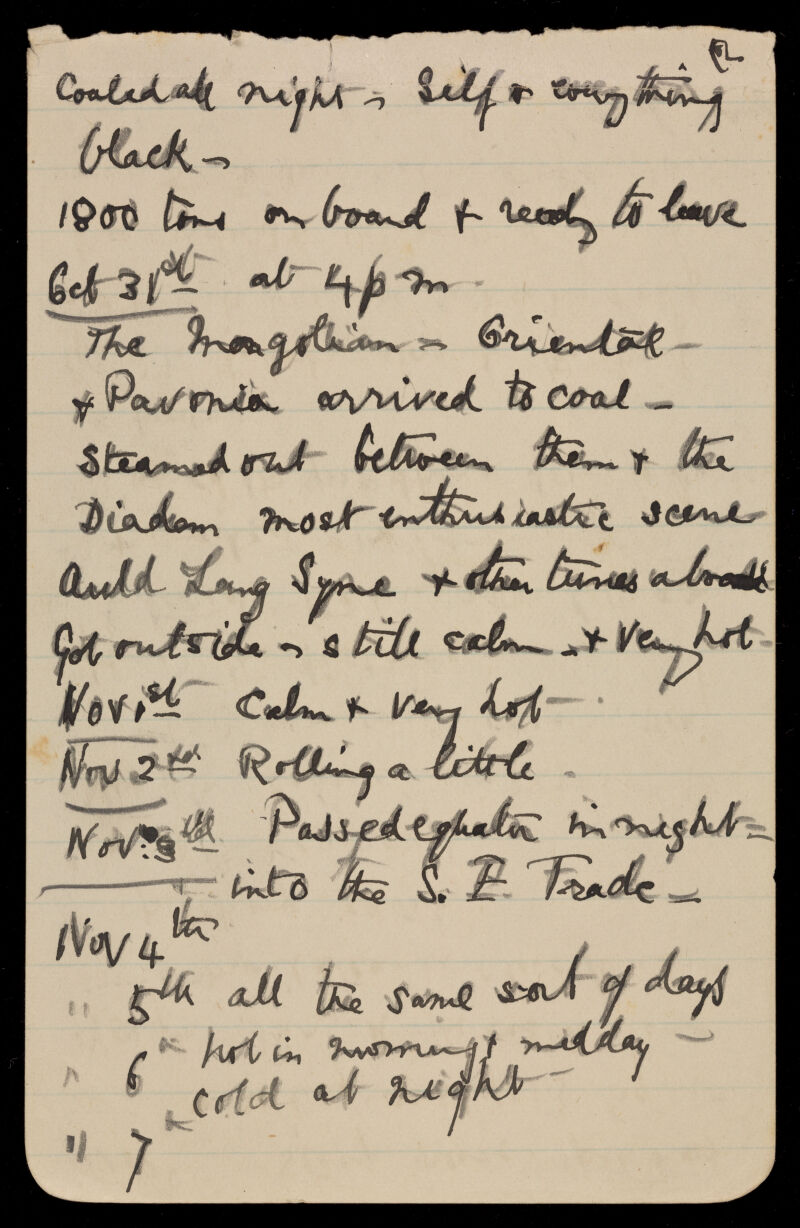 Coaled all night - Self & everything
black -
1800 tons on board & ready to leave
Oct 31st at 4 pm
The Mongolian - Oriental -
& Pavonia arrived to coal -
Steamed out between them & the
Diadem most enthusiastic scene
Auld Lang Syne & other tunes aboard
Got outside - still calm - & very hot -
Nov 1st Calm & very hot -
Nov 2nd Rolling a little .
Nov. 3rd Passed equator in night =
into the S. E Trade -
Nov 4th
" 5th all the same sort of days
" 6 " hot in morning & midday -
cold at night -
" 7 "